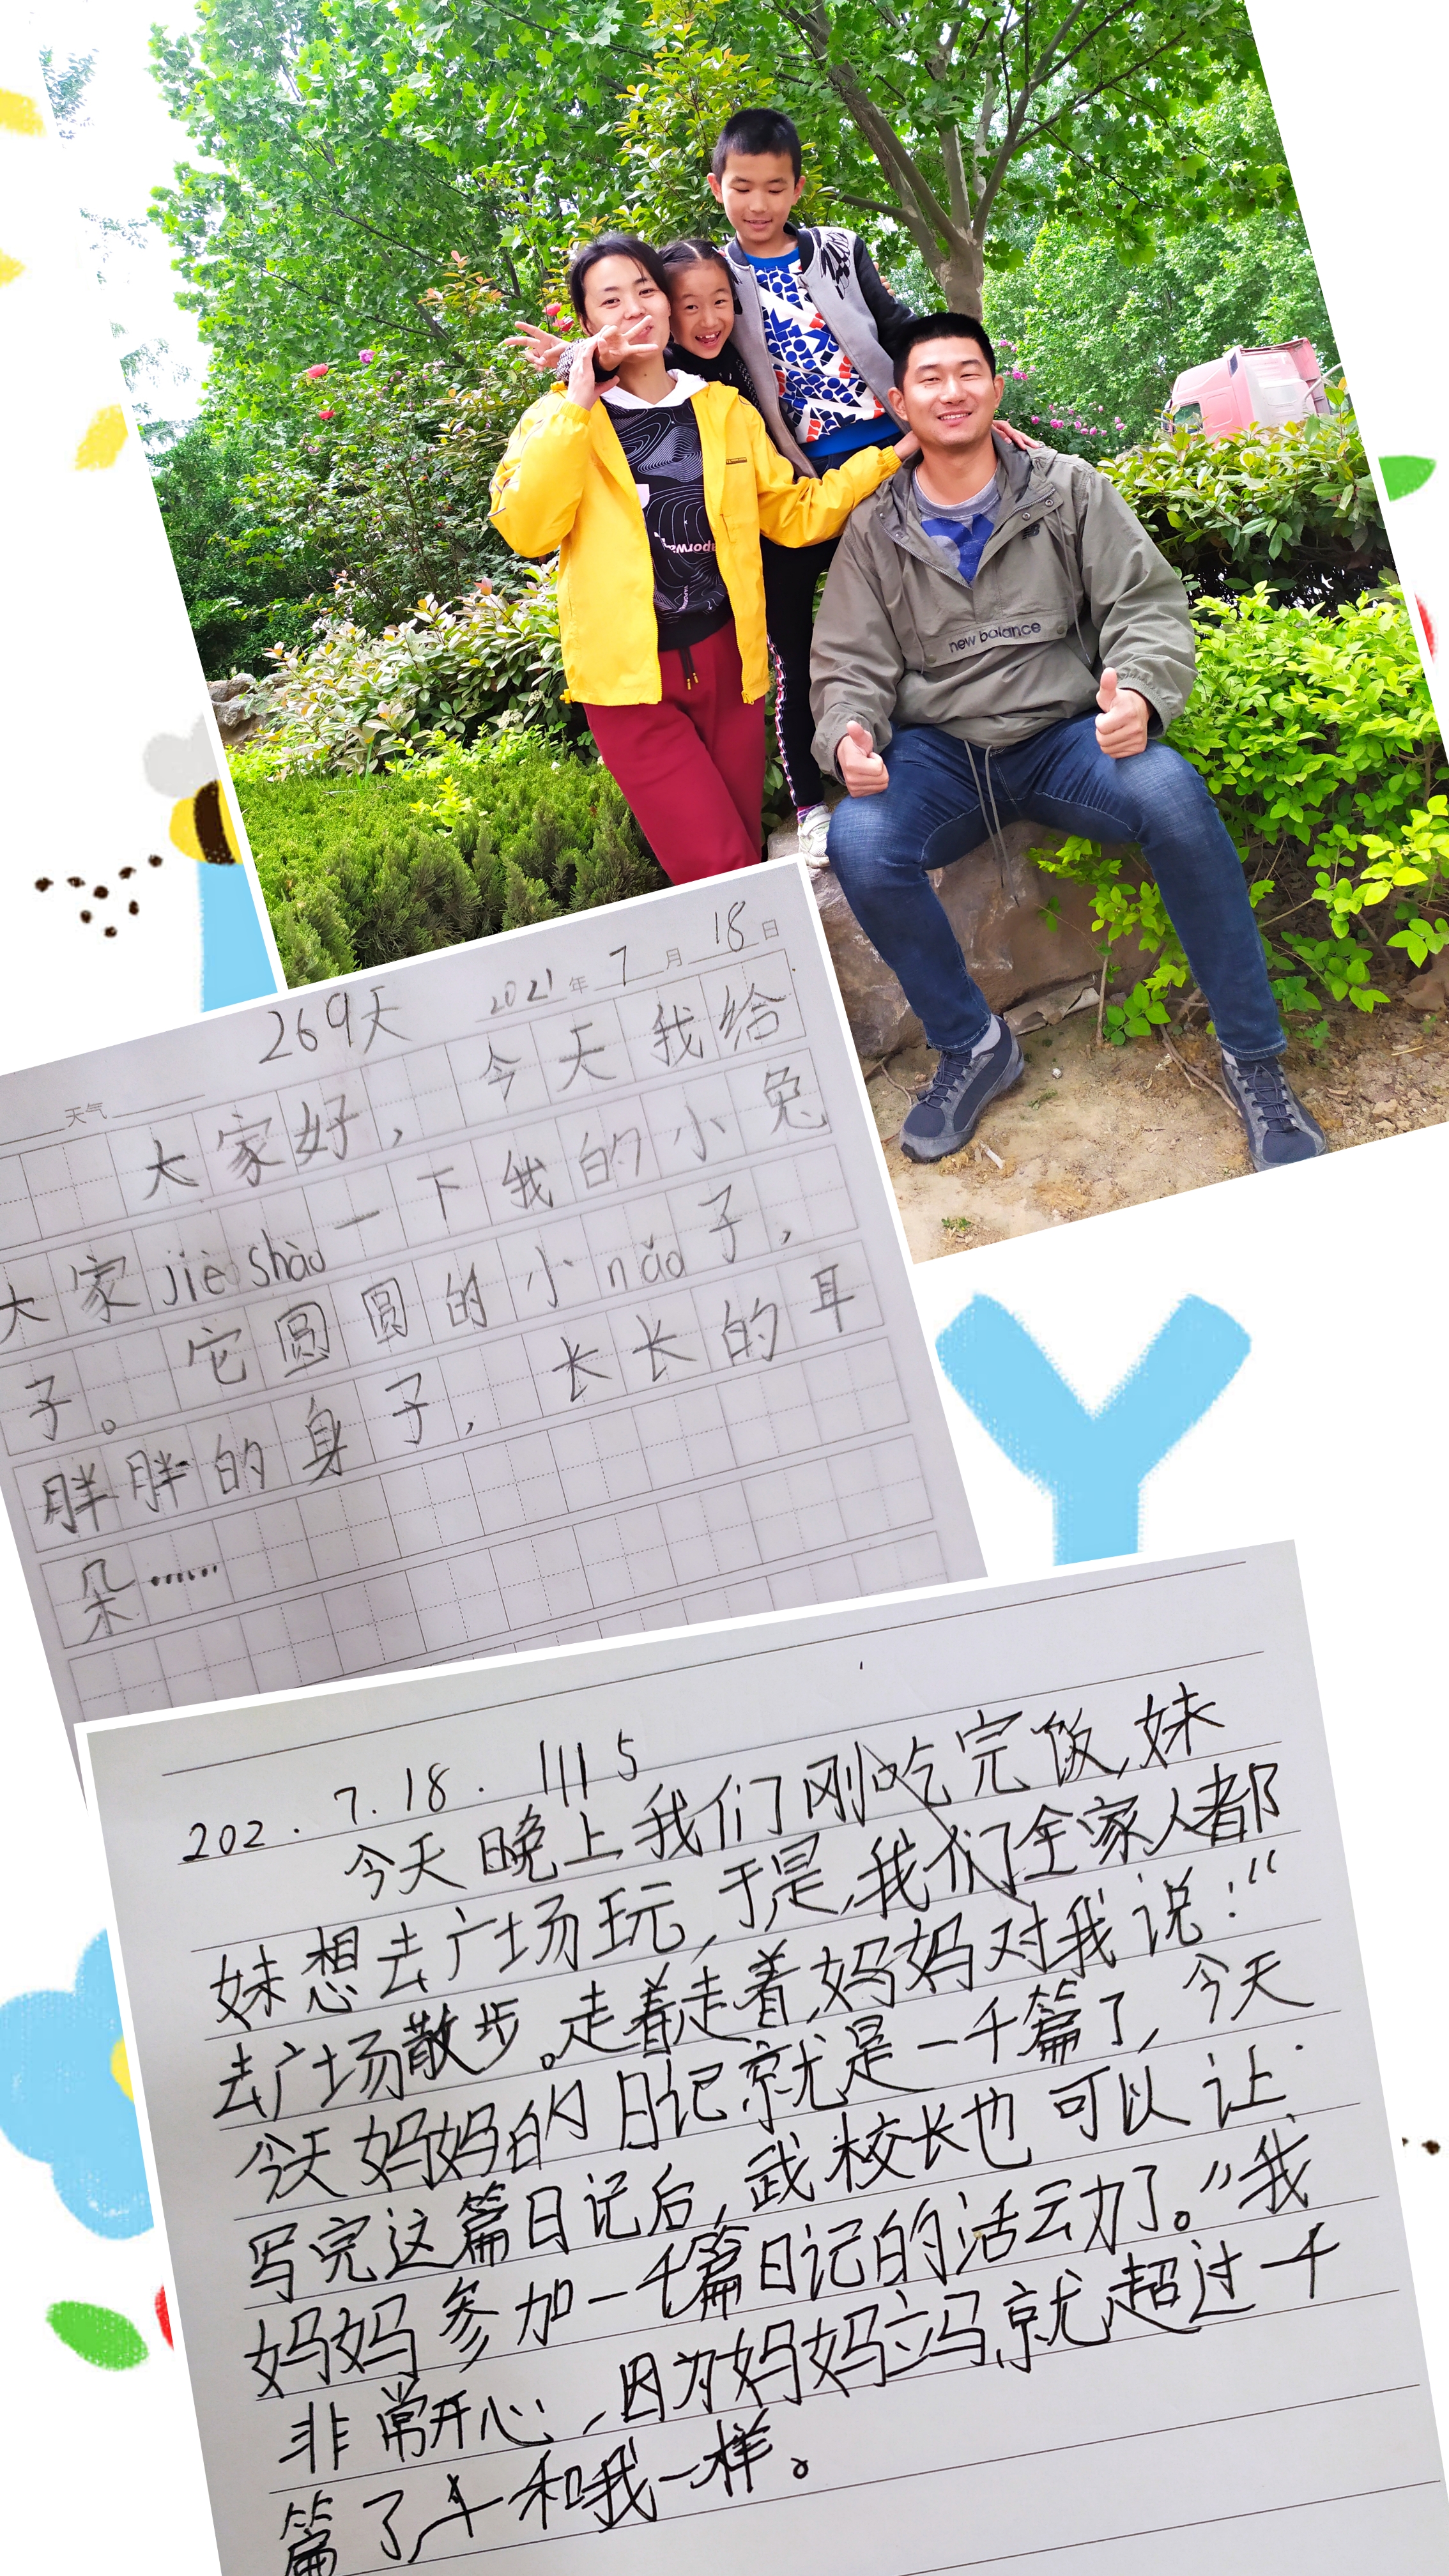 new balance
269天 2021年7月18日
天气
大家好，今天我给
大家jiè shào一下我的小兔
子。它圆圆的小nǎo子，
胖胖的身子，长长的耳
朵……
202.7.18. 1115
今天晚上我们刚吃完饭，妹
妹想去广场玩，于是，我们全家人都
去广场散步。走着走着，妈妈对我说：“
今天妈妈的日记就是一千篇了，今天
写完这篇日记后，武校长也可以让
妈妈参加一千篇日记的活动了。”我
非常开心，因为妈妈立马就超过一千
篇了，和我一样。